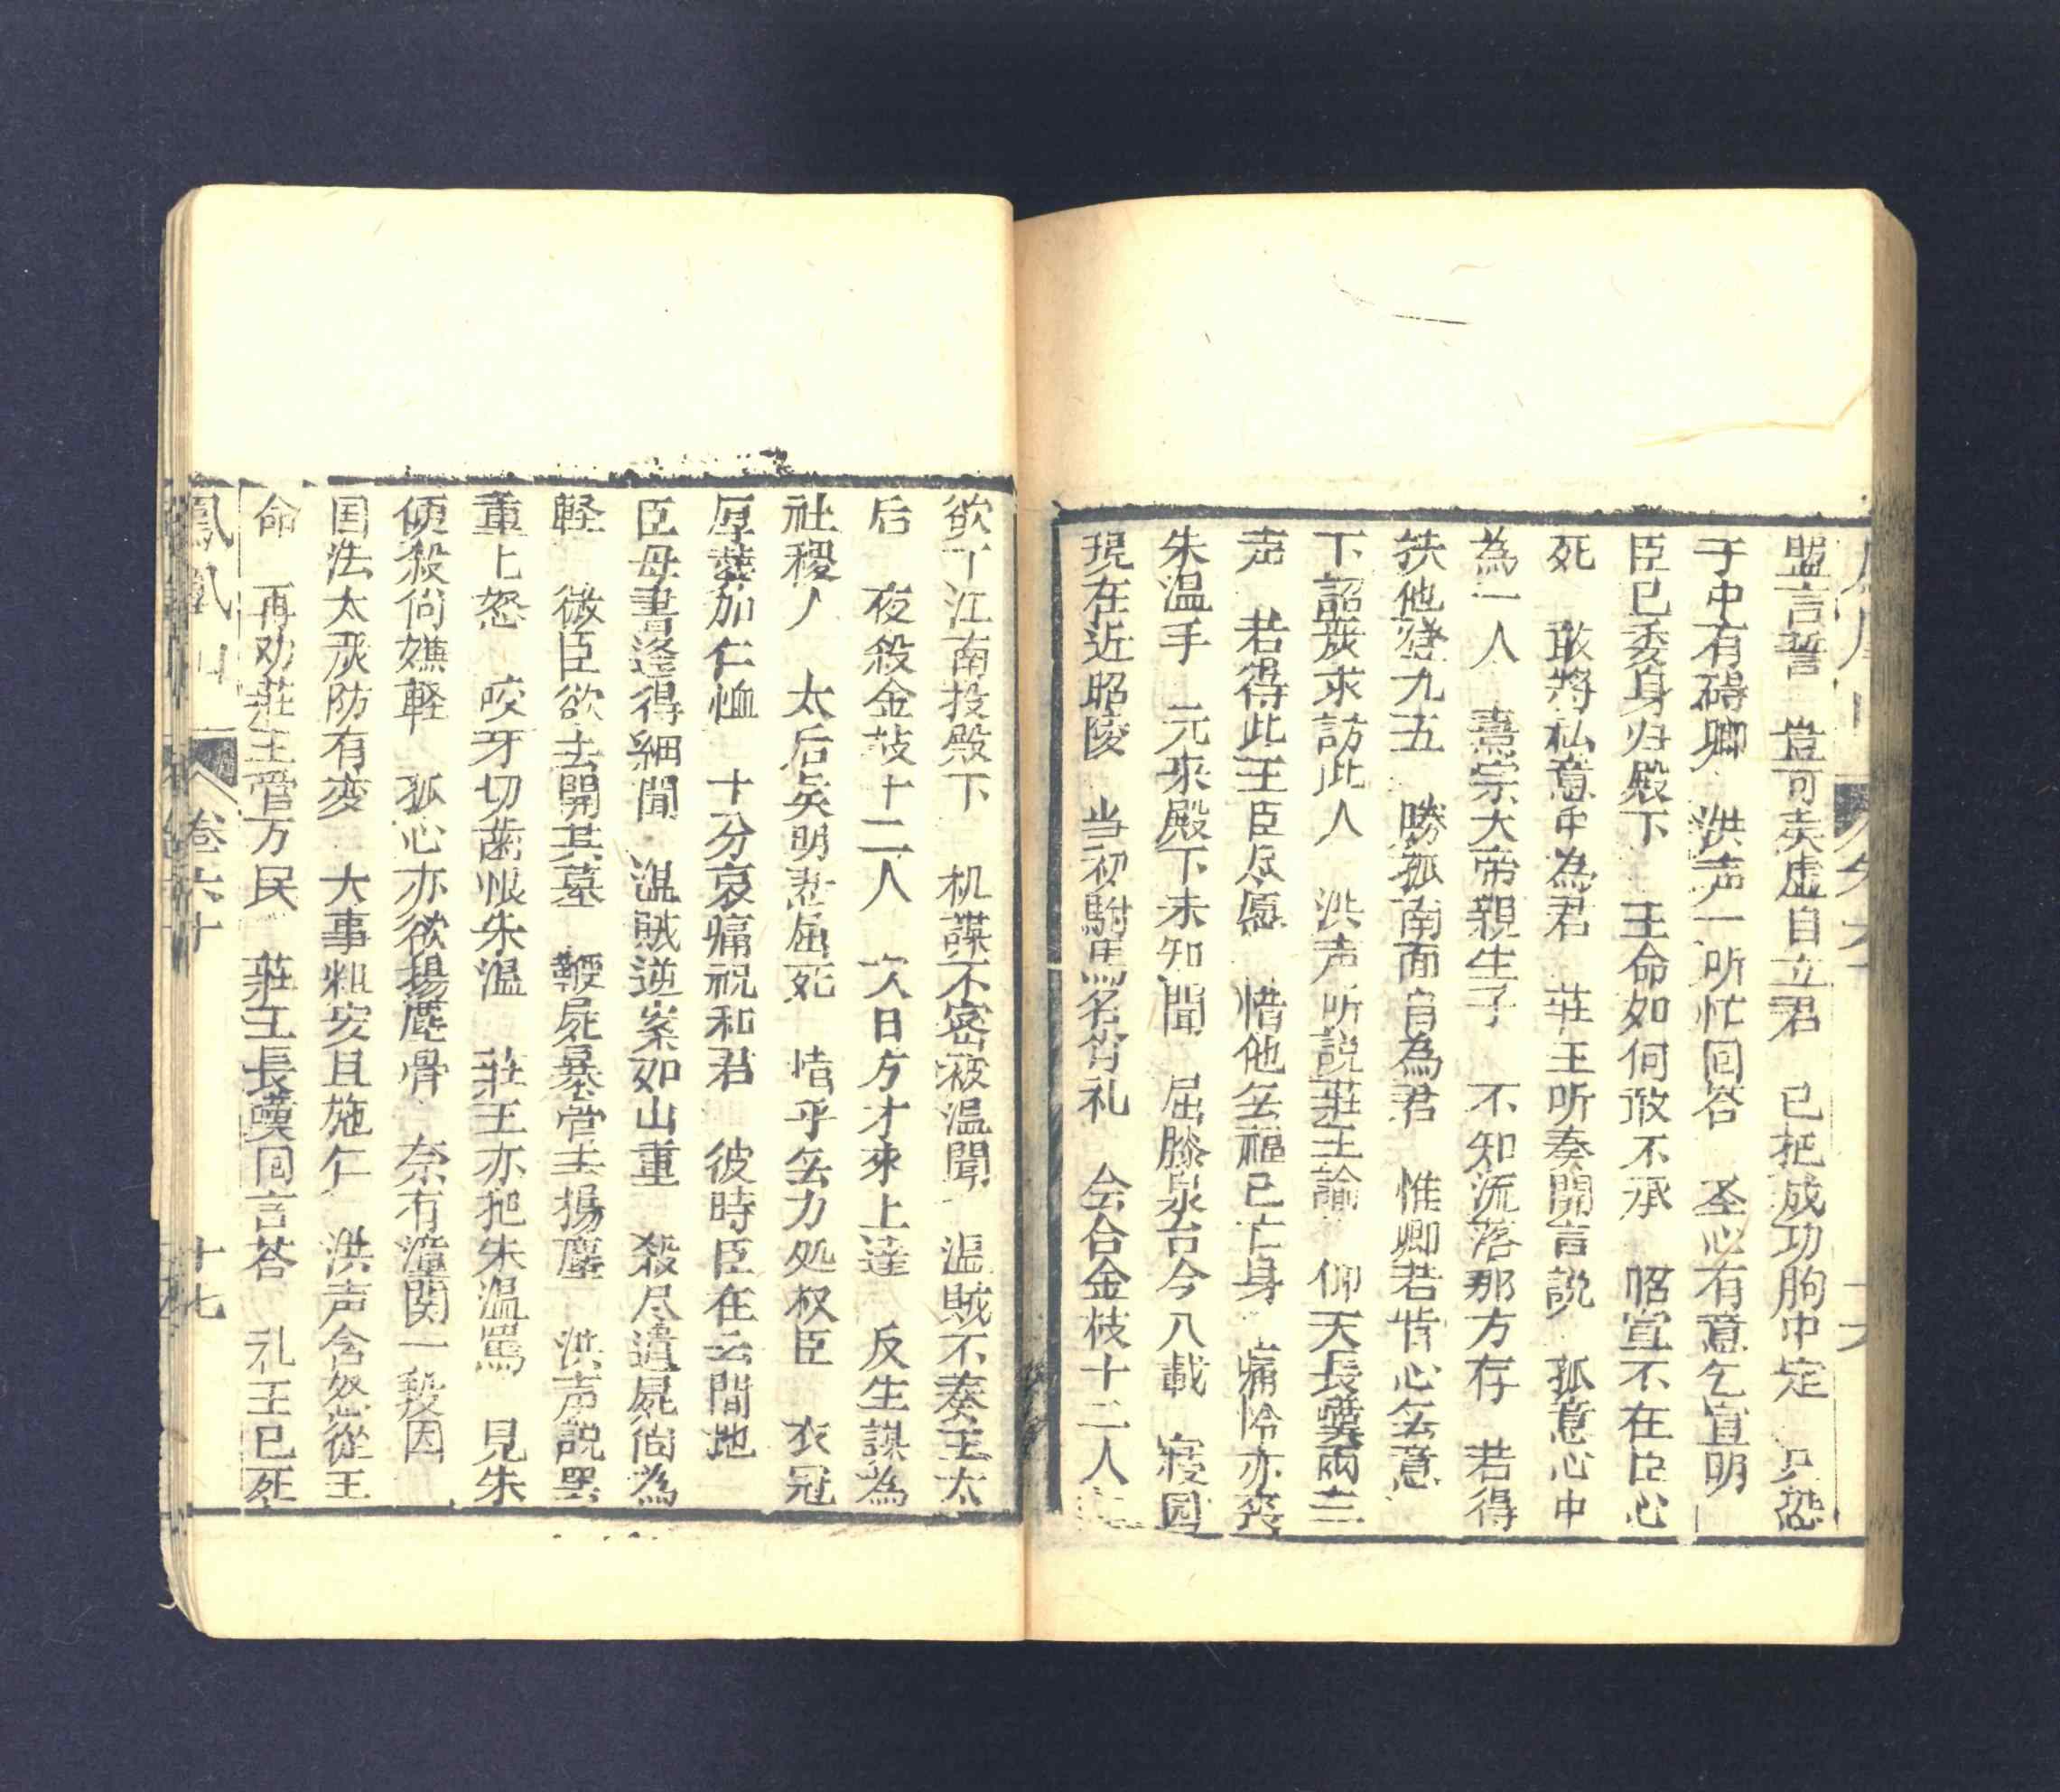 盟言誓　豈可卖虚自立君　已把成功胸中定　只恐
于中有碍卿　洪声一听忙囘答　圣心有意乞宣明
臣已委身归殿下　王命如何敢不承　昭宣不在臣心
死　敢將私意中為君　莊王听奏開言説　孤意心中
為一人　熹宗大帝親生子　不知流落那方存　若得
扶他登九五　勝孤南面自為君　惟卿若肯心尽意
下詔廣求訪此人　洪声听説莊王諭　仰天長嘆兩三
声　若得此王臣尽愿　惜他尽福已亡身　痛怜亦喪
朱温手　元來殿下未知聞　屈膝泉台今八載　寝园
現在近昭陵　当初駙馬名肖礼　会合金枝十二人
欲丁江南投殿下　机謀不密被温聞　温賊不奏王太
后　夜殺金枝十二人　次日方才來上達　反生謀為
社稷人　太后矣明悲屈死　惜乎无力処权臣　衣冠
厚葬加仁恤　十分哀痛祝和君　彼時臣在云間地
臣毋書逢得細聞　温賊逆案如山重　殺尽遺屍尙為
輕　微臣欲去開其墓　鞭屍暴骨去揚塵　洪声説罢
重上怒　咬牙切歯恨朱温　莊王亦把朱温罵　見朱
便殺尙嫌輕　孤心亦欲揚塵骨　奈有潼関一段因
国法太張防有変　大事粗安且施仁　洪声含怒從王
命　再劝莊王管万民　莊王長嘆囘言荅　礼王已死
鳳凰山　卷六十　十七